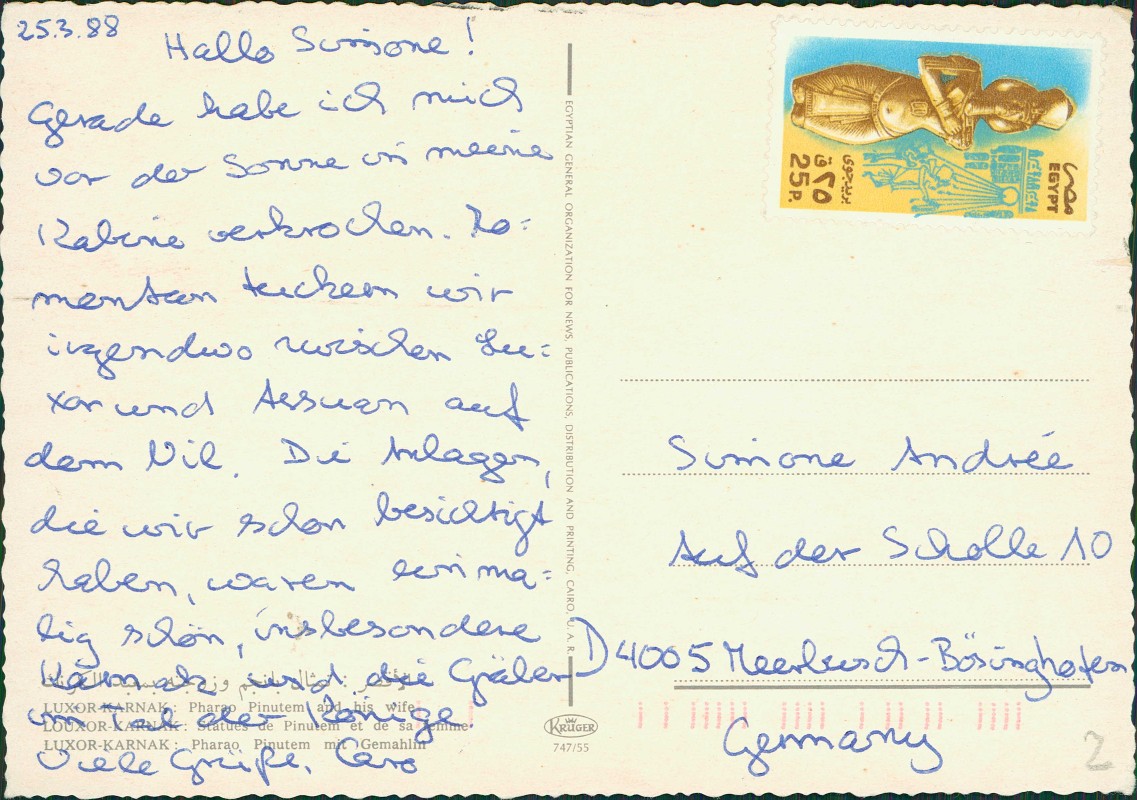 25.3.88
Hallo Simone!
Gerade habe ich mich
vor der Sonne in meine
Kabine verkrochen. Mo=
mentan tuckern wir
irgendwo zwischen Lu=
xor und Assuan auf
dem Nil. Die Anlagen,
die wir schon besichtigt
haben, waren einma=
lig schön, insbesondere
Karnak und die Gräber
im Tal der Könige.
Viele Grüße, Caro
LUXOR-KARNAK : Pharao Pinutem and his wife
LOUXOR-KARNAK : Statues de Pinutem et de sa femme
LUXOR-KARNAK : Pharao Pinutem mit Gemahlin
EGYPTIAN GENERAL ORGANIZATION FOR NEWS, PUBLICATIONS, DISTRIBUTION AND PRINTING, CAIRO, U. A. R.
KRÜGER
747/55
مصر
EGYPT
بريد جوى
٢٥ ق
25 P.
Simone Andrée
Auf der Scholle 10
D 4005 Meerbusch-Bösinghofen
Germany
2